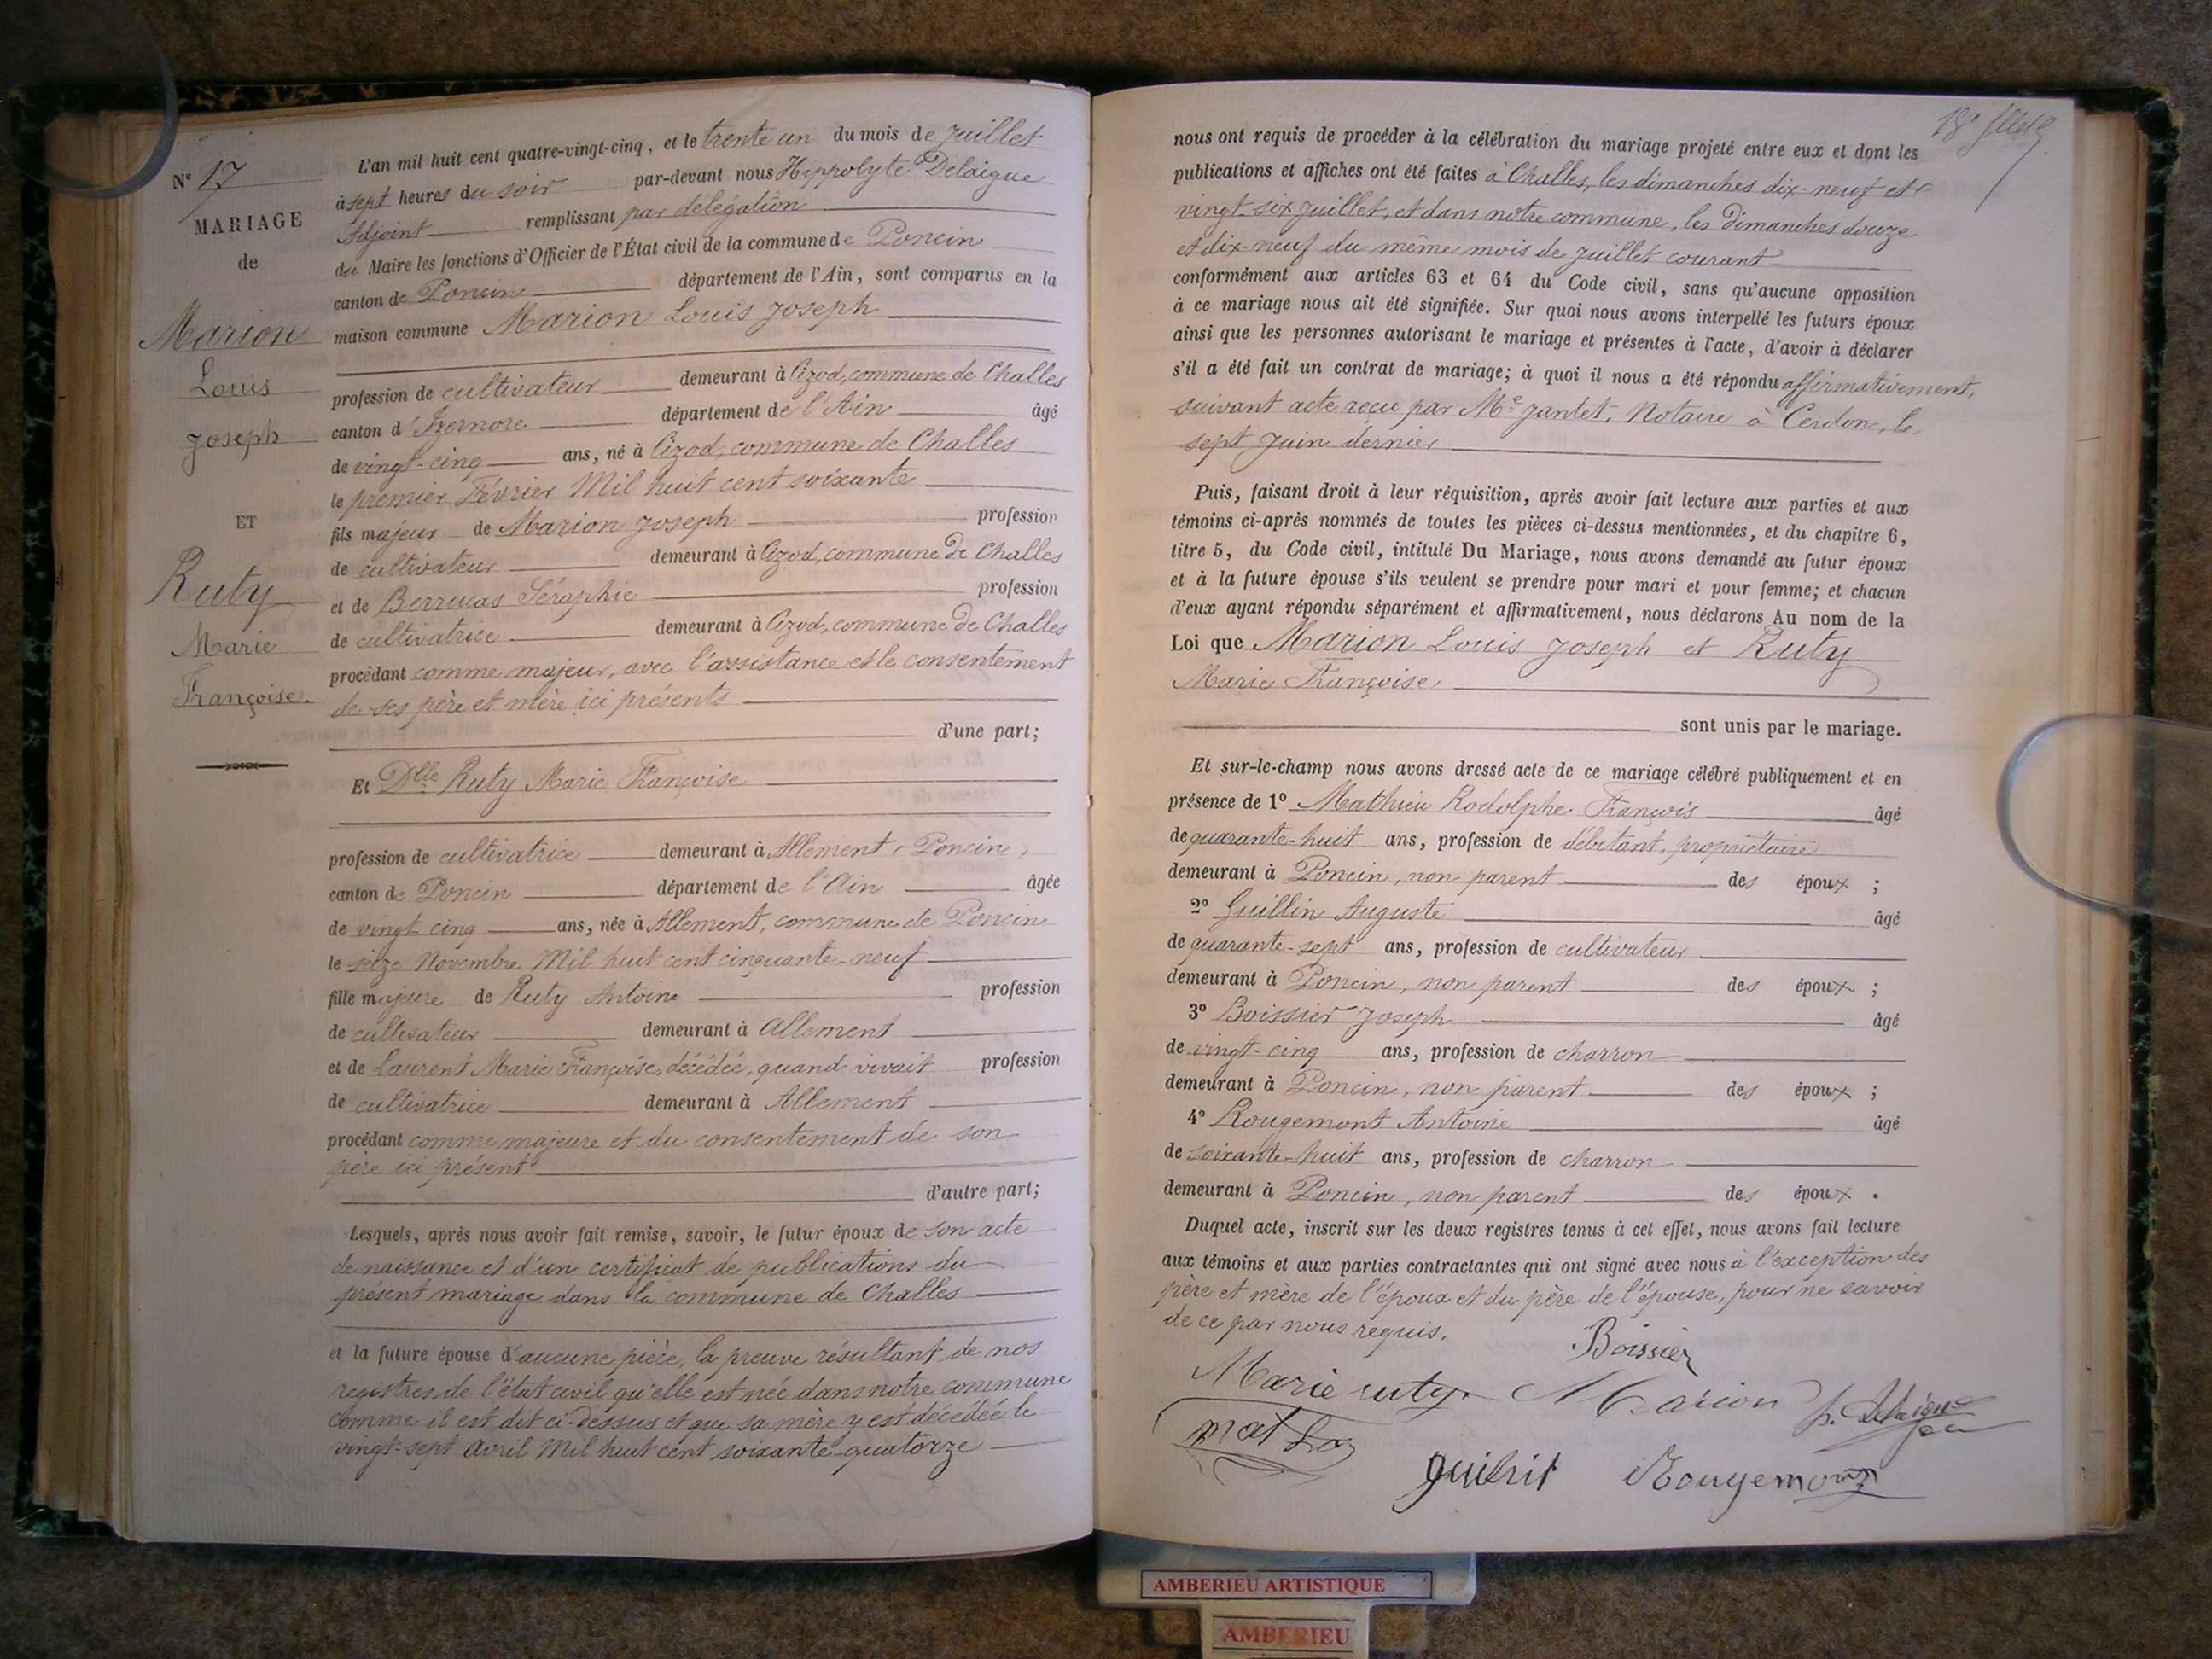 N° 17
MARIAGE
de
Marion
Louis
Joseph
ET
Ruty
Marie
Françoise.
L'an mil huit cent quatre-vingt-cinq, et le trente un du mois de Juillet
à sept heures du soir par-devant nous Hippolyte Delaigue
Adjoint remplissant par délégation
du Maire les fonctions d'Officier de l'État civil de la commune de Poncin
canton de Poncin département de l'Ain, sont comparus en la
maison commune Marion Louis Joseph
profession de cultivateur demeurant à Cizod, commune de Challes
canton d'Izernore département de l'Ain âgé
de vingt-cinq ans, né à Cizod, commune de Challes
le premier Février Mil huit cent soixante
fils majeur de Marion Joseph profession
de cultivateur demeurant à Cizod, commune de Challes
et de Berrucas Séraphie profession
de cultivatrice demeurant à Cizod, commune de Challes
procédant comme majeur, avec l'assistance et le consentement
de ses père et mère ici présents
d'une part;
Et Dlle Ruty Marie Françoise
profession de cultivatrice demeurant à Allement (Poncin)
canton de Poncin département de l'Ain âgée
de vingt cinq ans, née à Allement, commune de Poncin
le seize Novembre Mil huit cent cinquante-neuf
fille majeure de Ruty Antoine profession
de cultivateur demeurant à Allement
et de Laurent Marie Françoise, décédée, quand vivait profession
de cultivatrice demeurant à Allement
procédant comme majeure et du consentement de son
père ici présent
d'autre part;
Lesquels, après nous avoir fait remise, savoir, le futur époux de son acte
de naissance et d'un certificat de publications du
présent mariage dans la commune de Challes
et la future épouse d'aucune pièce, la preuve résultant de nos
registres de l'état civil qu'elle est née dans notre commune
comme il est dit ci-dessus et que sa mère y est décédée le
vingt-sept Avril Mil huit cent soixante-quatorze
nous ont requis de procéder à la célébration du mariage projeté entre eux et dont les
publications et affiches ont été faites à Challes, les dimanches dix-neuf et
vingt-six Juillet, et dans notre commune, les dimanches douze
et dix-neuf du même mois de Juillet courant
conformément aux articles 63 et 64 du Code civil, sans qu'aucune opposition
à ce mariage nous ait été signifiée. Sur quoi nous avons interpellé les futurs époux
ainsi que les personnes autorisant le mariage et présentes à l'acte, d'avoir à déclarer
s'il a été fait un contrat de mariage; à quoi il nous a été répondu affirmativement,
suivant acte reçu par Me Jantet, Notaire à Cerdon, le
sept Juin dernier
Puis, faisant droit à leur réquisition, après avoir fait lecture aux parties et aux
témoins ci-après nommés de toutes les pièces ci-dessus mentionnées, et du chapitre 6,
titre 5, du Code civil, intitulé Du Mariage, nous avons demandé au futur époux
et à la future épouse s'ils veulent se prendre pour mari et pour femme; et chacun
d'eux ayant répondu séparément et affirmativement, nous déclarons Au nom de la
Loi que Marion Louis Joseph et Ruty
Marie Françoise,
sont unis par le mariage.
Et sur-le-champ nous avons dressé acte de ce mariage célébré publiquement et en
présence de 1° Mathieu Rodolphe François âgé
de quarante-huit ans, profession de débitant, propriétaire
demeurant à Poncin, non parent des époux ;
2° Guillin Auguste âgé
de quarante-sept ans, profession de cultivateur
demeurant à Poncin, non parent des époux ;
3° Boissier Joseph âgé
de vingt-cinq ans, profession de charron
demeurant à Poncin, non parent des époux ;
4° Rougemont Antoine âgé
de soixante-huit ans, profession de charron
demeurant à Poncin, non parent des époux .
Duquel acte, inscrit sur les deux registres tenus à cet effet, nous avons fait lecture
aux témoins et aux parties contractantes qui ont signé avec nous à l'exception des
père et mère de l'époux et du père de l'épouse, pour ne savoir
de ce par nous requis.
Boissier
Marie ruty Marion h. Delaigue
Rougemont
AMBERIEU ARTISTIQUE
AMBERIEU